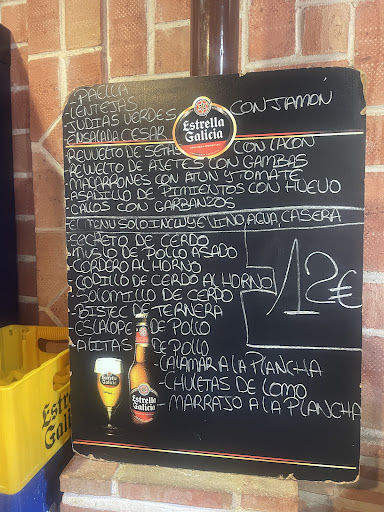 -PAELLA
-LENTEJAS
-JUDIAS VERDES CON JAMÓN
-ENSALADA CESAR
Estrella
Galicia
-REVUELTO DE SETAS CON LACON
-REVUELTO DE AJETES CON GAMBAS
-MACARRONES CON ATUN Y TOMATE
-ASADILLO DE PIMIENTOS CON HUEVO
-CALLOS CON GARBANZOS
EL MENU SOLO INCLUYE VINO, AGUA, CASERA
-SECRETO DE CERDO
-MUSLO DE POLLO ASADO
-CORDERO AL HORNO
-CODILLO DE CERDO AL HORNO
-SOLOMILLO DE CERDO
12€
-BISTEC DE TERNERA
-ESCALOPE DE POLLO
-ALITAS DE POLLO
-CALAMAR A LA PLANCHA
-CHULETAS DE LOMO
-MARRAJO A LA PLANCHA
Estrella
Galicia
Estrella
Galicia